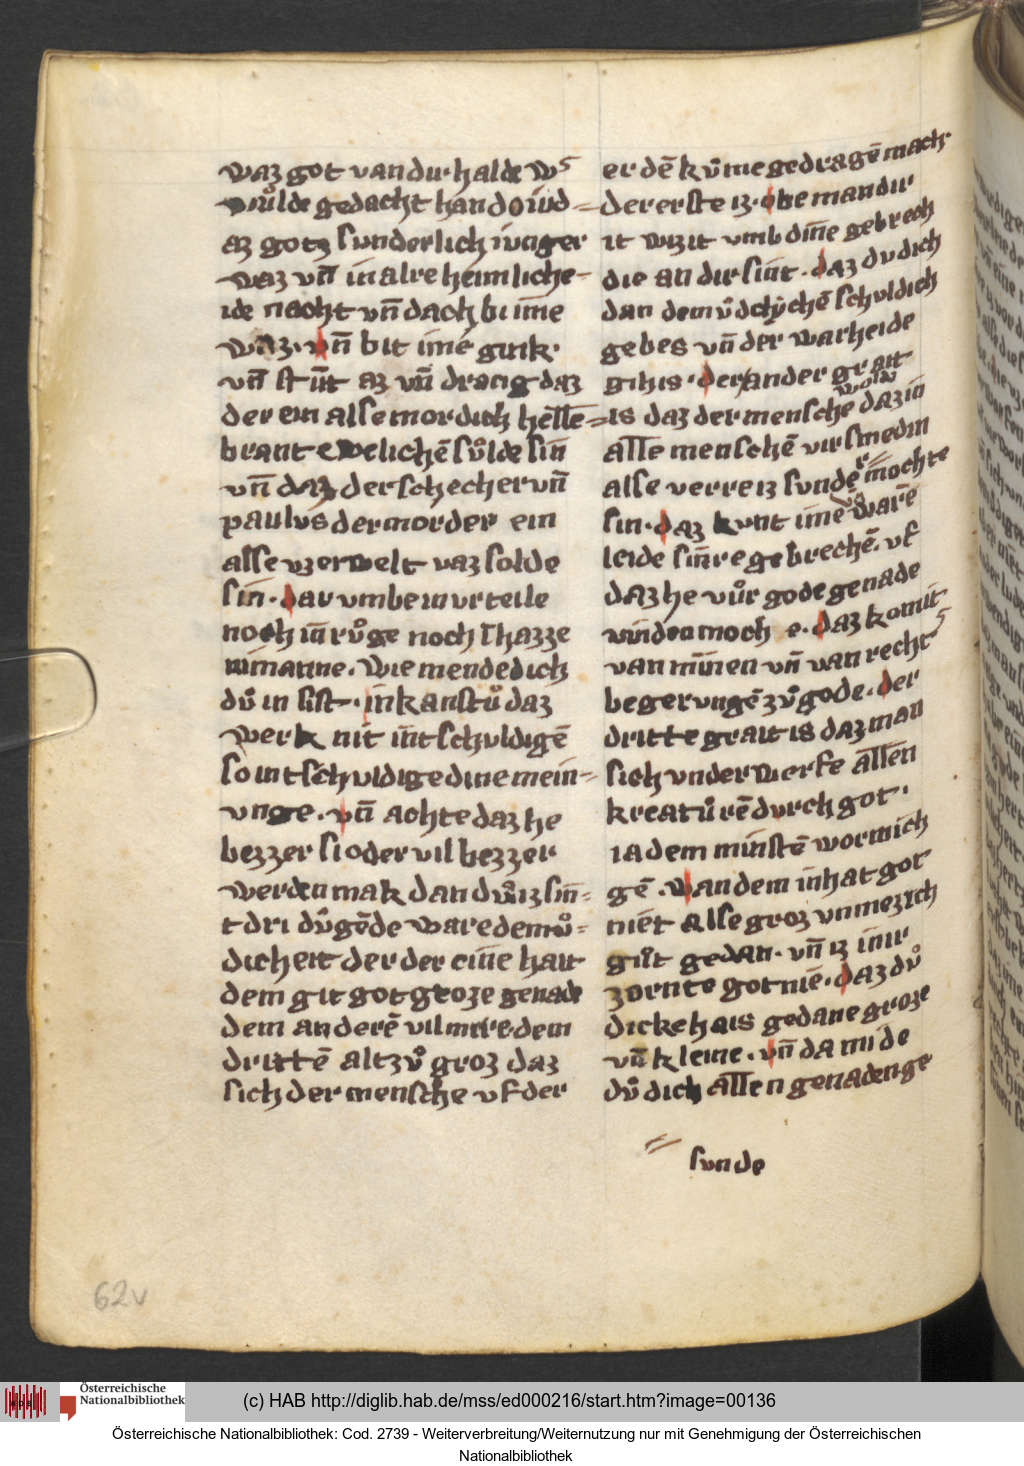 waz got van du · halde wˢ
wůlde gedacht han do iůd=
az gotz sunderlich iunger
waz vn̄ in al re heimliche-
ide nacht vn̄ dach bi ime
waz · vn̄ bit imē gink ·
vn̄ stūt az vn̄ drang daz
der ein alse mordich helle=
brant ewelichē sůlde sin
vn̄ daz der schecher vn̄
paulvs der morder ein
alse vzerwelt vaz solde
sin · dar vmbe in vrteile
noch in̄ růge noch īhazze
nimanne · wie mende dich
dů in sist · in kanstů daz
werk nit in̄tschvldigē
so intschvldige dine mein=
vnge · vn̄ achte daz he
bezzer si oder vil bezzer
werden mak dan dv̊ iz sin̄=
t dri důgēde ware demů=
dicheit der der eine hait
dem git got groze genade
dem anderē vil mere · dem
drittē altzů groz daz
sich der mensche vf der
er dē kůme gedragē mach ·
der erste iz · obe man dir
it wizit vmb dine gebrech
die an dir sint · daz du dich
dan demůdchichē schvldich
gebes vn̄ der warheide
gihis · der ander grait
is daz der menschē wolde daz in
alle menschē virsmedin
alse verre iz sunder mochte
sin · daz kvnt imē warē
leide sin̄re gebrechē · vf
daz he vůr gode genade
vinden moch e · daz komit
van minnen vn̄ van rechtˢ
begervngē zů gode · der
dritte grait is daz man
sich vnder werfe allen
kreatůrē dvrch got ·
ia dem minstē wormich
gē · wan dem in hat got
niet alse groz vnmezich
gůt gedan · vn̄ iz in ir
zornte got niē · daz dů
dicke hais gedane groze
vn̄ kleine · vn̄ da mide
dů dich allen genaden ge
sunde
62v
Österreichische
Nationalbibliothek
(c) HAB http://diglib.hab.de/mss/ed000216/start.htm?image=00136
Österreichische Nationalbibliothek: Cod. 2739 - Weiterverbreitung/Weiternutzung nur mit Genehmigung der Österreichischen
Nationalbibliothek